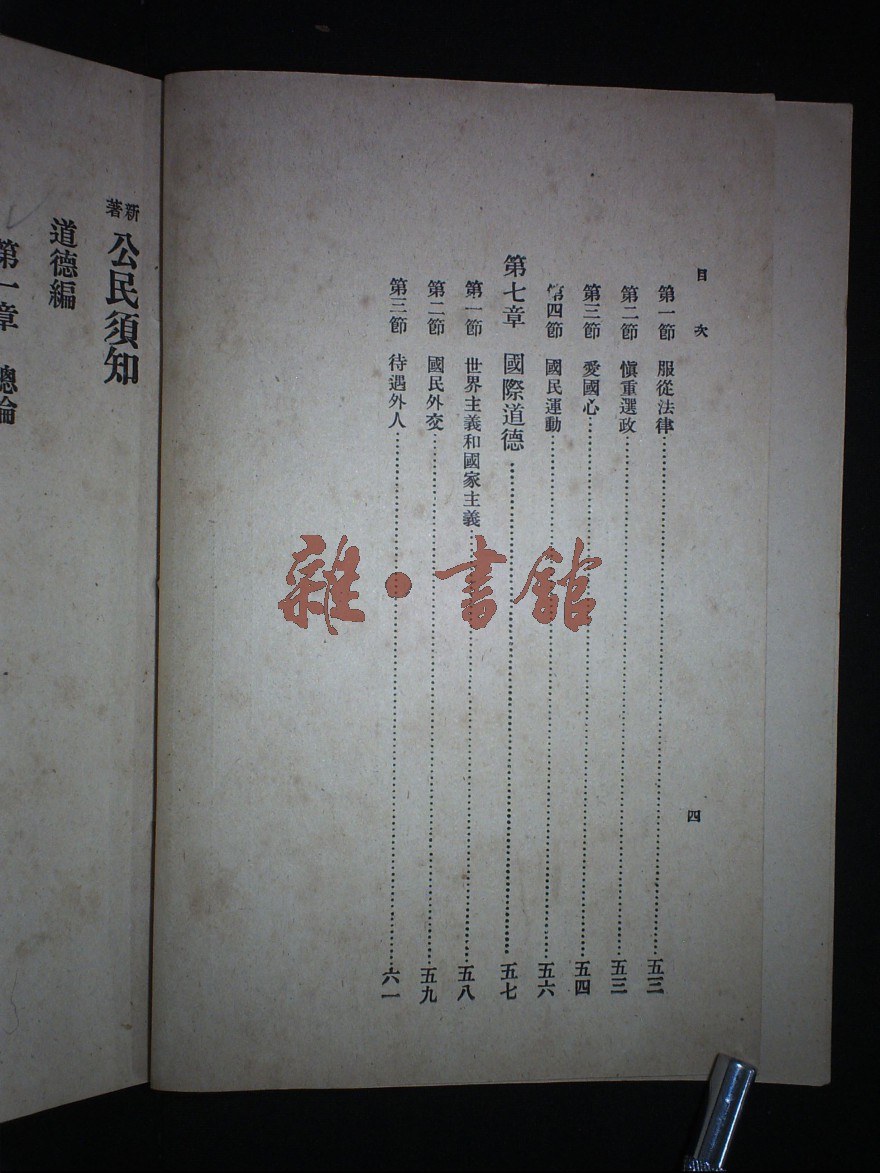 目次
四
第一節 服從法律……五三
第二節 慎重選政……五三
第三節 愛國心……五四
第四節 國民運動……五六
第七章 國際道德……五七
第一節 世界主義和國家主義……五八
第二節 國民外交……五九
第三節 待遇外人……六一
新著 公民須知
道德編
第一章 總論
雜·書館